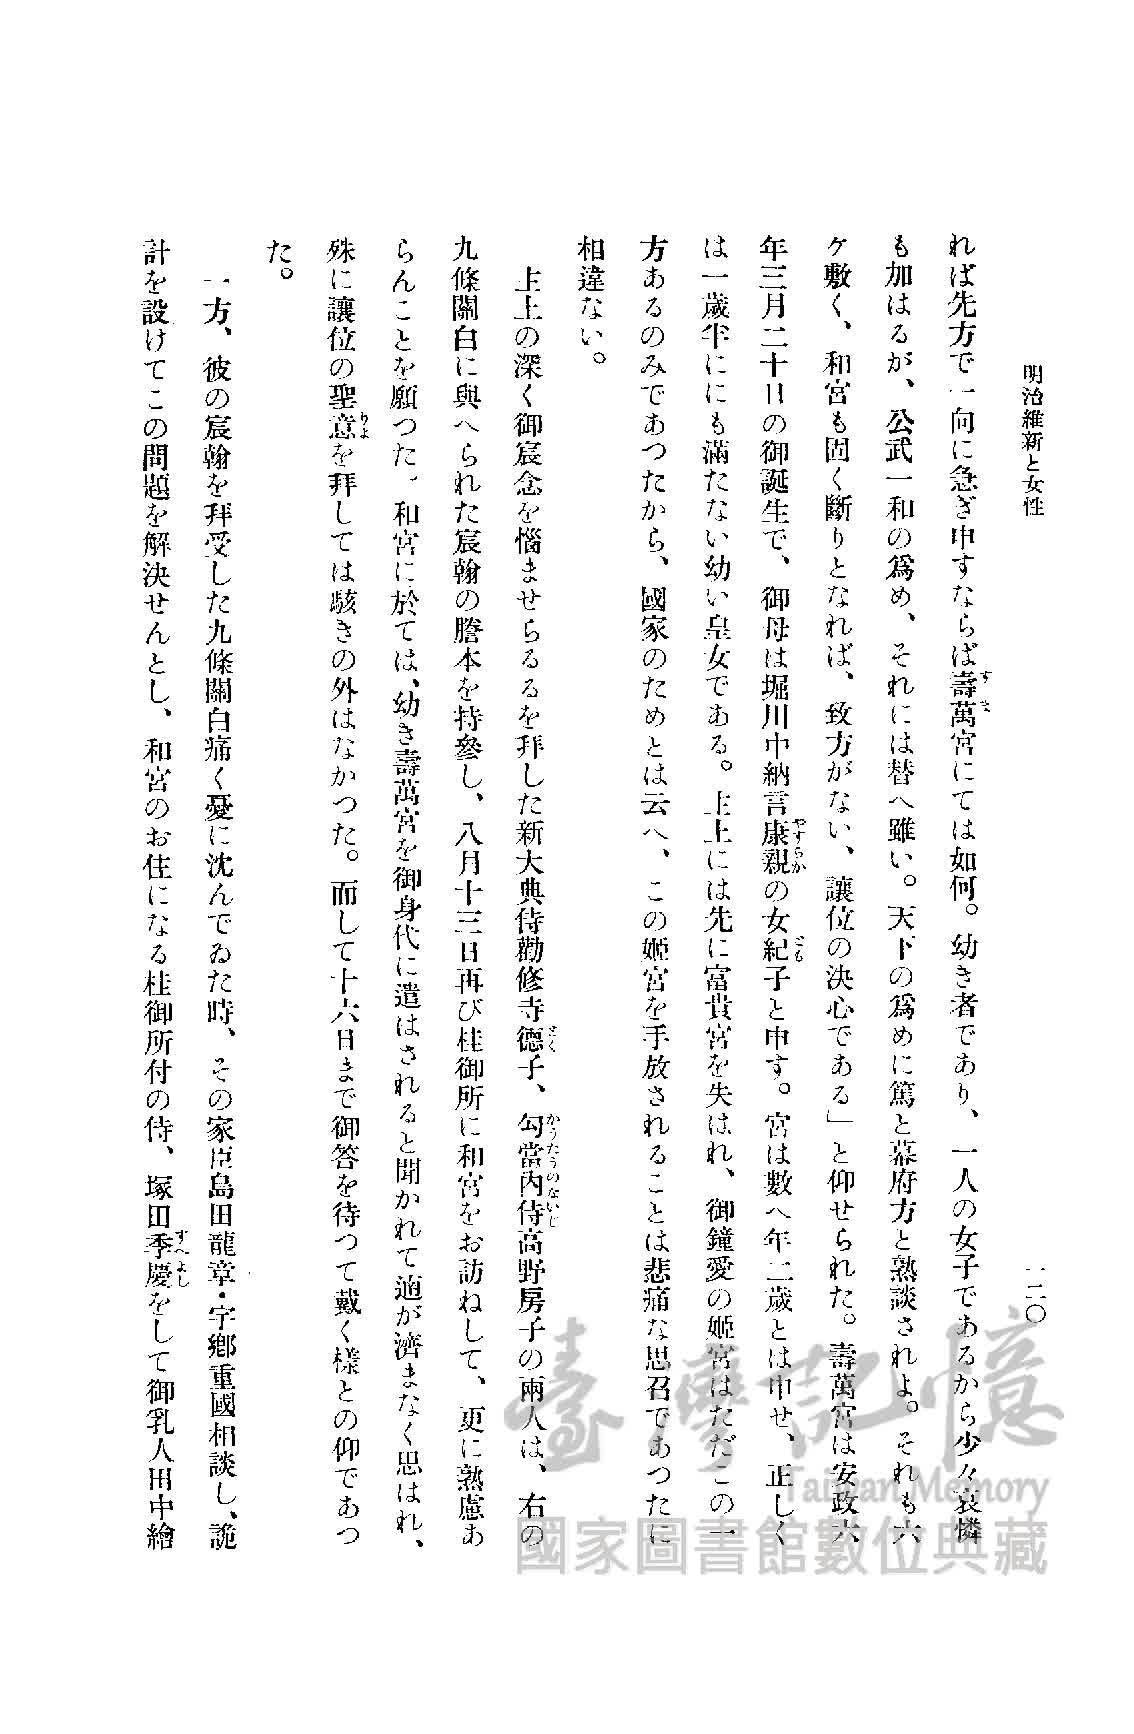 明治維新と女性
一二〇
れば先方で一向に急ぎ申すならば壽萬宮にては如何。幼き者であり、一人の女子であるから少々哀憐
も加はるが、公武一和の爲め、それには替へ難い。天下の爲めに篤と幕府方と熟談されよ。それも六
ケ敷く、和宮も固く斷りとなれば、致方がない、讓位の決心である」と仰せられた。壽萬宮は安政六
年三月二十日の御誕生で、御母は堀川中納言康親の女紀子と申す。宮は數へ年二歳とは申せ、正しく
は一歳半ににも滿たない幼い皇女である。上上には先に富貴宮を失はれ、御鐘愛の姬宮はただこの一
方あるのみであつたから、國家のためとは云へ、この姬宮を手放されることは悲痛な思召であつたに
相違ない。
上上の深く御宸念を惱ませらるるを拜した新大典侍勸修寺德子、勾當内侍高野房子の兩人は、右の
九條關白に與へられた宸翰の謄本を持參し、八月十三日再び桂御所に和宮をお訪ねして、更に熟慮あ
らんことを願つた。和宮に於ては、幼き壽萬宮を御身代に遣はされると聞かれて適が濟まなく思はれ、
殊に讓位の聖意を拜しては駭きの外はなかつた。而して十六日まで御答を待つて戴く樣との仰であつ
た。
一方、彼の宸翰を拜受した九條關白痛く憂に沈んでゐた時、その家臣島田龍章・宇鄕重國相談し、詭
計を設けてこの問題を解決せんとし、和宮のお住になる桂御所付の侍、塚田季慶をして御乳人田中繪
すま
やすちか
さく
かうたうのないじ
りよ
すへよし
臺灣記憶
Taiwan Memory
國家圖書館數位典藏